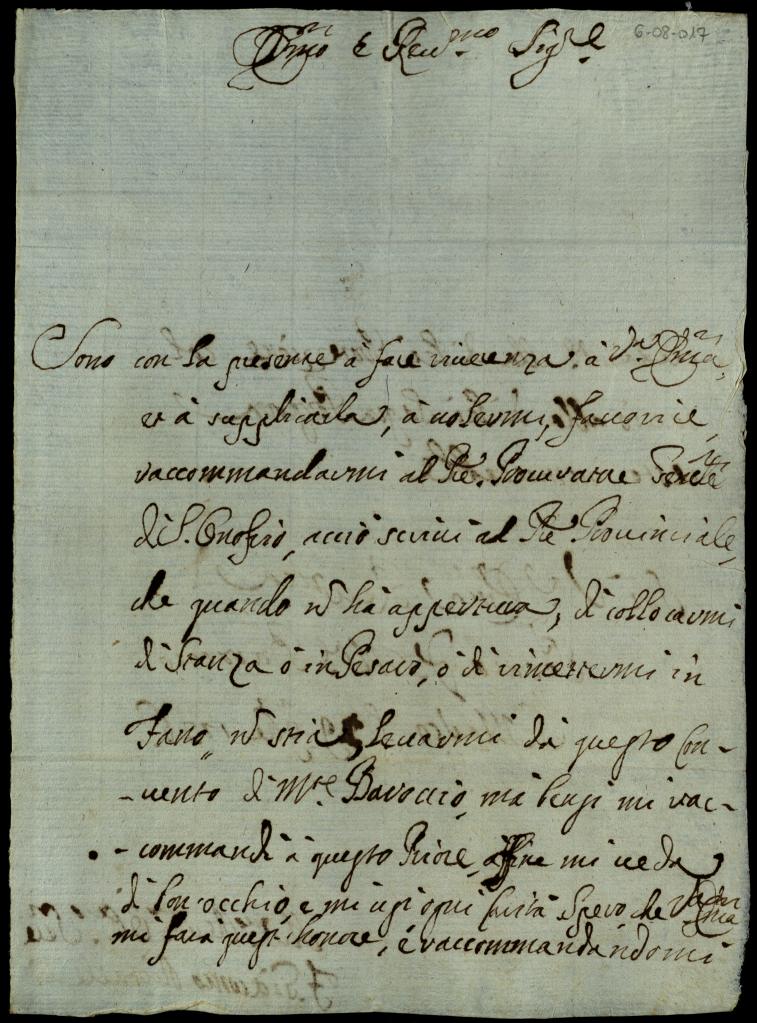 6-08-017
Illmo e Reumo Sigre
Sono con la presente à fare riuerenza à Va Illma,
et à supplicarla, à uolermi, fauorire,
raccommandarmi al Pre. Procuratore Genle
di S. Onofrio, acciò scriui al Pre. Prouinciale,
che quando nō hà appertura, di collocarmi
di stanza ò in Pesaro, ò di rimettermi in
Fano, nō stia leuarmi dà questo Con-
-uento di Mte. Baroccio, mà bensi mi rac-
-commandi à questo Priore, affine mi ueda
di bon occhio, e mi usi ogni carità. Spero, che Va Illma
mi farà quest'honore, e raccommandandomi